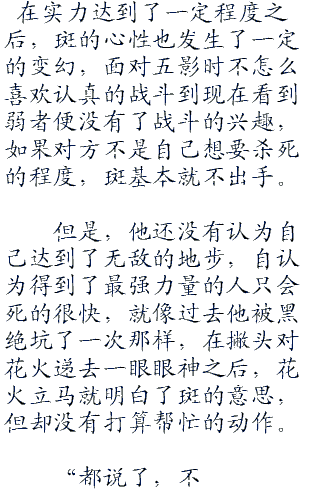 在实力达到了一定程度之
后，斑的心性也发生了一定
的变幻，面对五影时不怎么
喜欢认真的战斗到现在看到
弱者便没有了战斗的兴趣，
如果对方不是自己想要杀死
的程度，斑基本就不出手。
但是，他还没有认为自
己达到了无敌的地步，自认
为得到了最强力量的人只会
死的很快，就像过去他被黑
绝坑了一次那样，在撇头对
花火递去一眼眼神之后，花
火立马就明白了斑的意思，
但却没有打算帮忙的动作。
“都说了，不